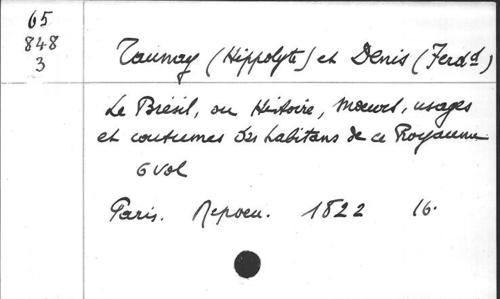 65
848
3
Taunay (Hippolyte) et Denis (Ferd^d)
Le Brésil, ou Histoire, moeurs, usages
et coutumes des habitans de ce Royaume
6 vol
Paris. Nepveu. 1822 16.